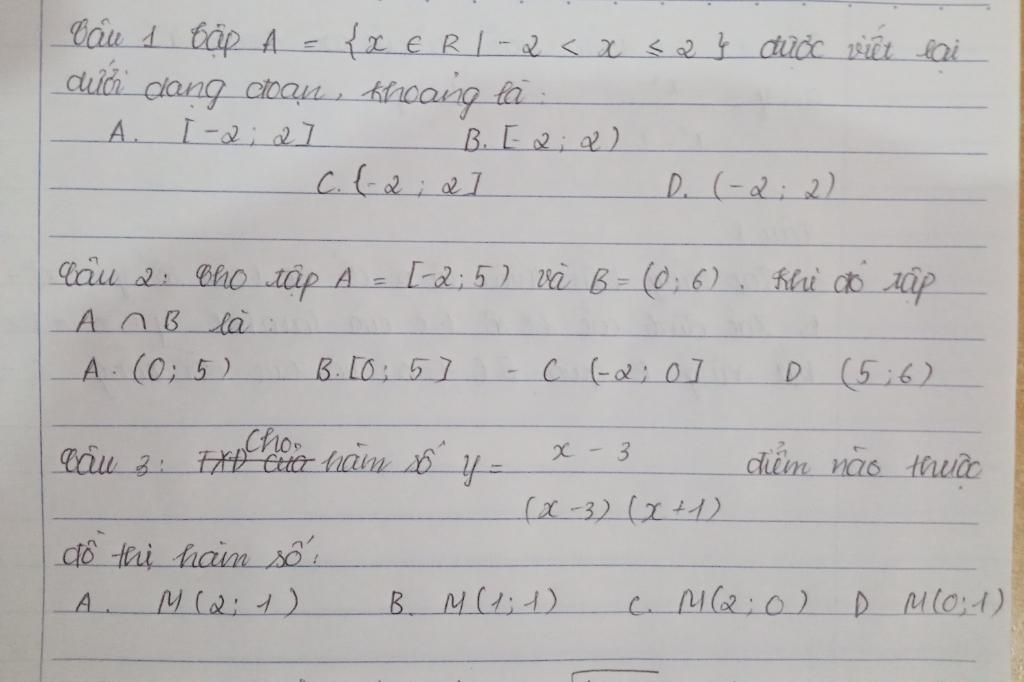 Câu 1 Tập A = {x ∈ R | -2 < x ≤ 2} được viết lại
dưới dạng đoạn, khoảng là:
A. [-2; 2] B. [-2; 2)
C. (-2; 2] D. (-2; 2)
Câu 2: Cho tập A = [-2; 5) và B = (0; 6). Khi đó tập
A ∩ B là:
A. (0; 5) B. [0; 5] - C (-2; 0] D (5; 6)
Câu 3: TXĐ của Cho hàm số y = x - 3 / (x - 3)(x + 1) điểm nào thuộc
đồ thị hàm số:
A. M(2; 1) B. M(1; 1) C. M(2; 0) D M(0; 1)